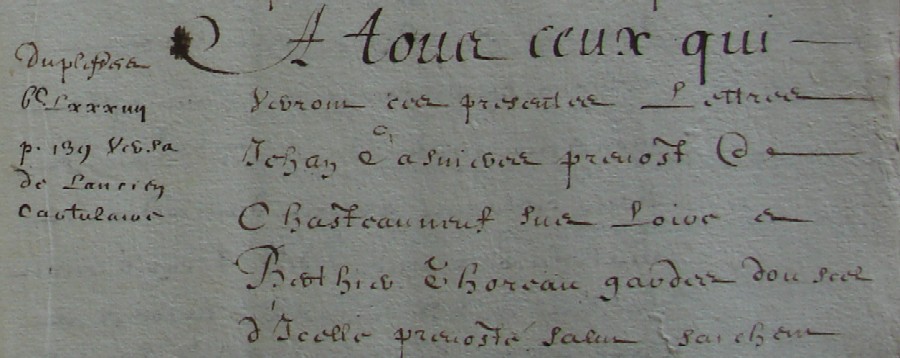 Duplessis
p. 139 versa
de Lancien
Cartulaire
A tous ceux qui
verront ces presentes Lettres
Jehan Casnivere prevost
Chasteauneuf sus Loire
Thoreau gardes dou scel
d'Icelle prevosté salut sachent